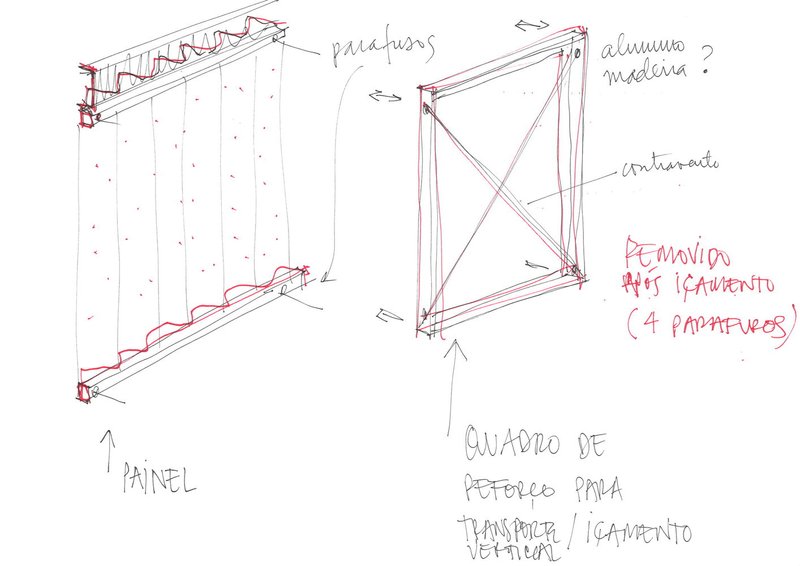 parafusos
alumínio
madeira?
contravento
REMOVIDO
APÓS IÇAMENTO
(4 PARAFUSOS)
PAINEL
QUADRO DE
REFORÇO PARA
TRANSPORTE/IÇAMENTO
VERTICAL